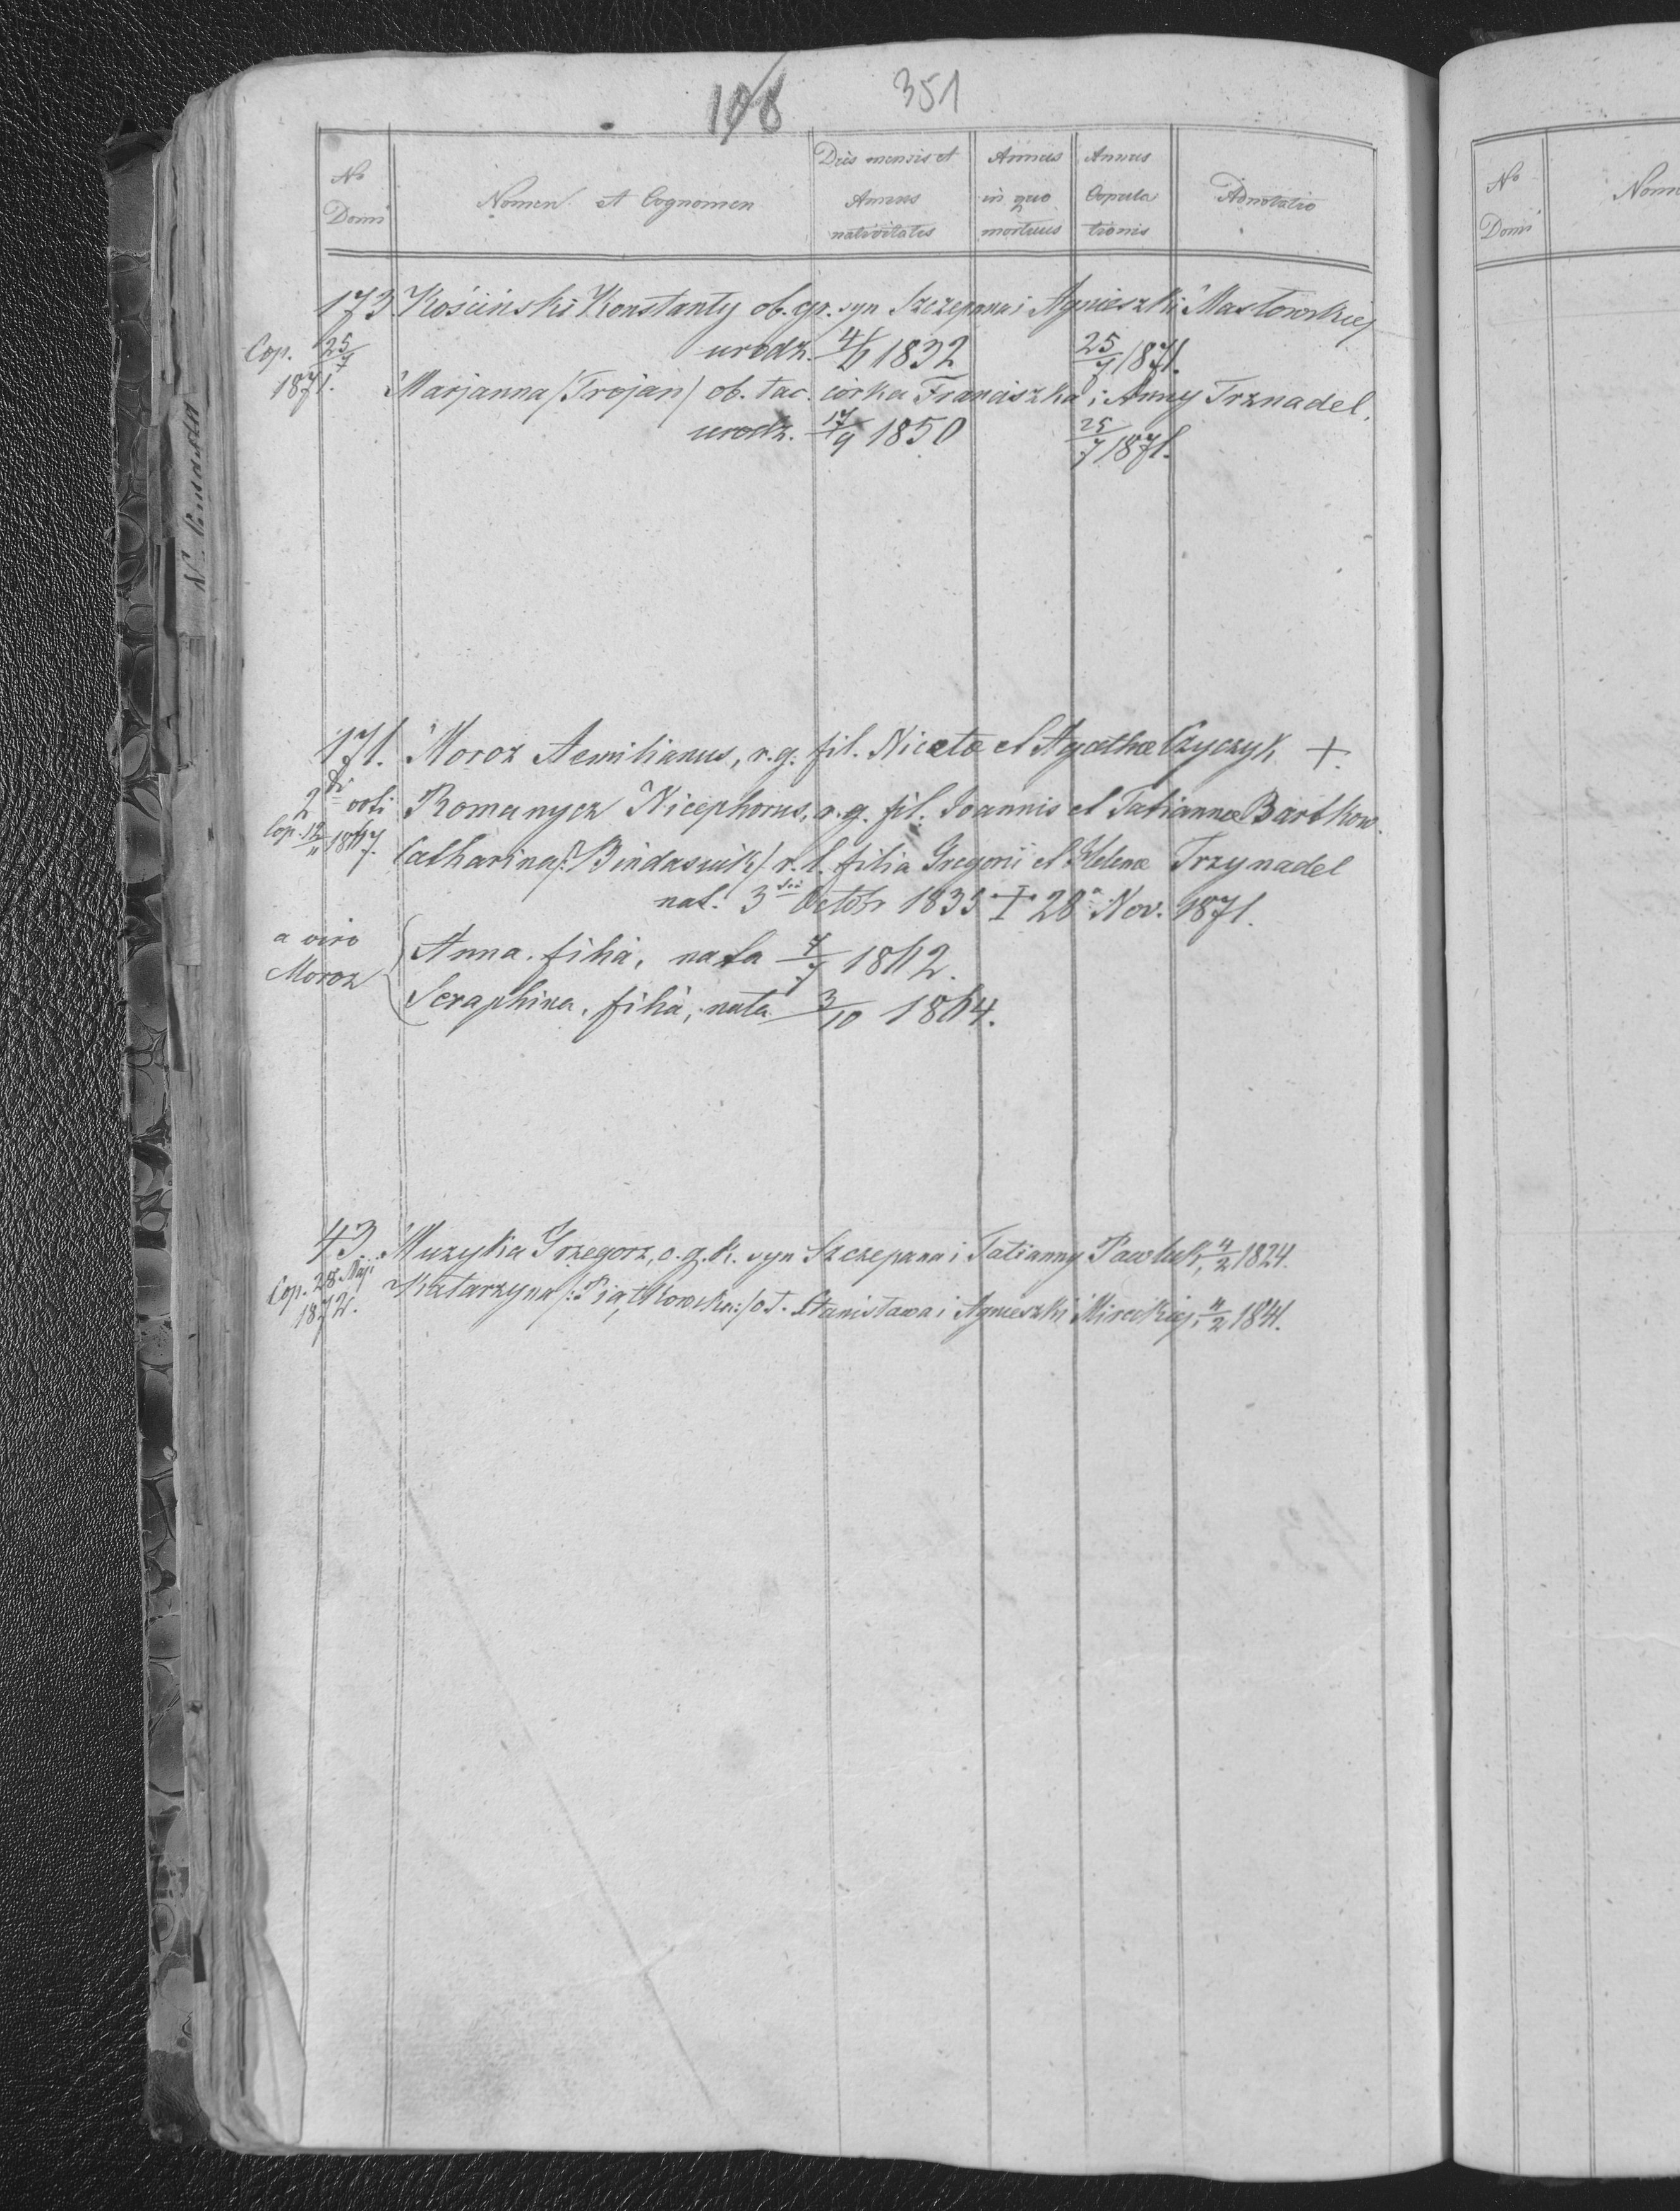 108 351
No Domi
Nomen et Cognomen
Dies mensis et Annus nativitatis
Annus in quo mortuus
Annus Copulationis
Adnotatio
173. Kościński Konstanty ob. gr. syn Szczepana i Agnieszki Masłowskiej
Cop. 25/7 1871.
urodz. 1832 25/7 1871.
Marjanna /Trojan/ ob. łac. córka Franciszka i Anny Trznadel.
urodz. 17/9 1850 25/7 1871.
171. Moroz Aemilianus, r.g. fil. Nicetæ et Agathæ Czyczyk +.
2di voti Romanycz Nicephorus, r.g. fil. Joannis et Tatiannæ Bartkow.
Cop. 12/11 1867. Catharina /:Bindasiuk/ r.l. filia Gregorii et Helenæ Trzynadel
nat. 3 Octobr 1835 + 28a Nov. 1871.
a viro Moroz
Anna, filia, nata 7/7 1862.
Seraphina, filia, nata 3/10 1864.
43. Muzyka Grzegorz, o.g.k. syn Szczepana i Tatianny Pawluk, 4/2 1824.
Cop. 28 Maji 1872.
Katarzyna /:Piątkowska:/ o.ł. Stanisława i Agnieszki 4/2 1841.
No Domi
Nom